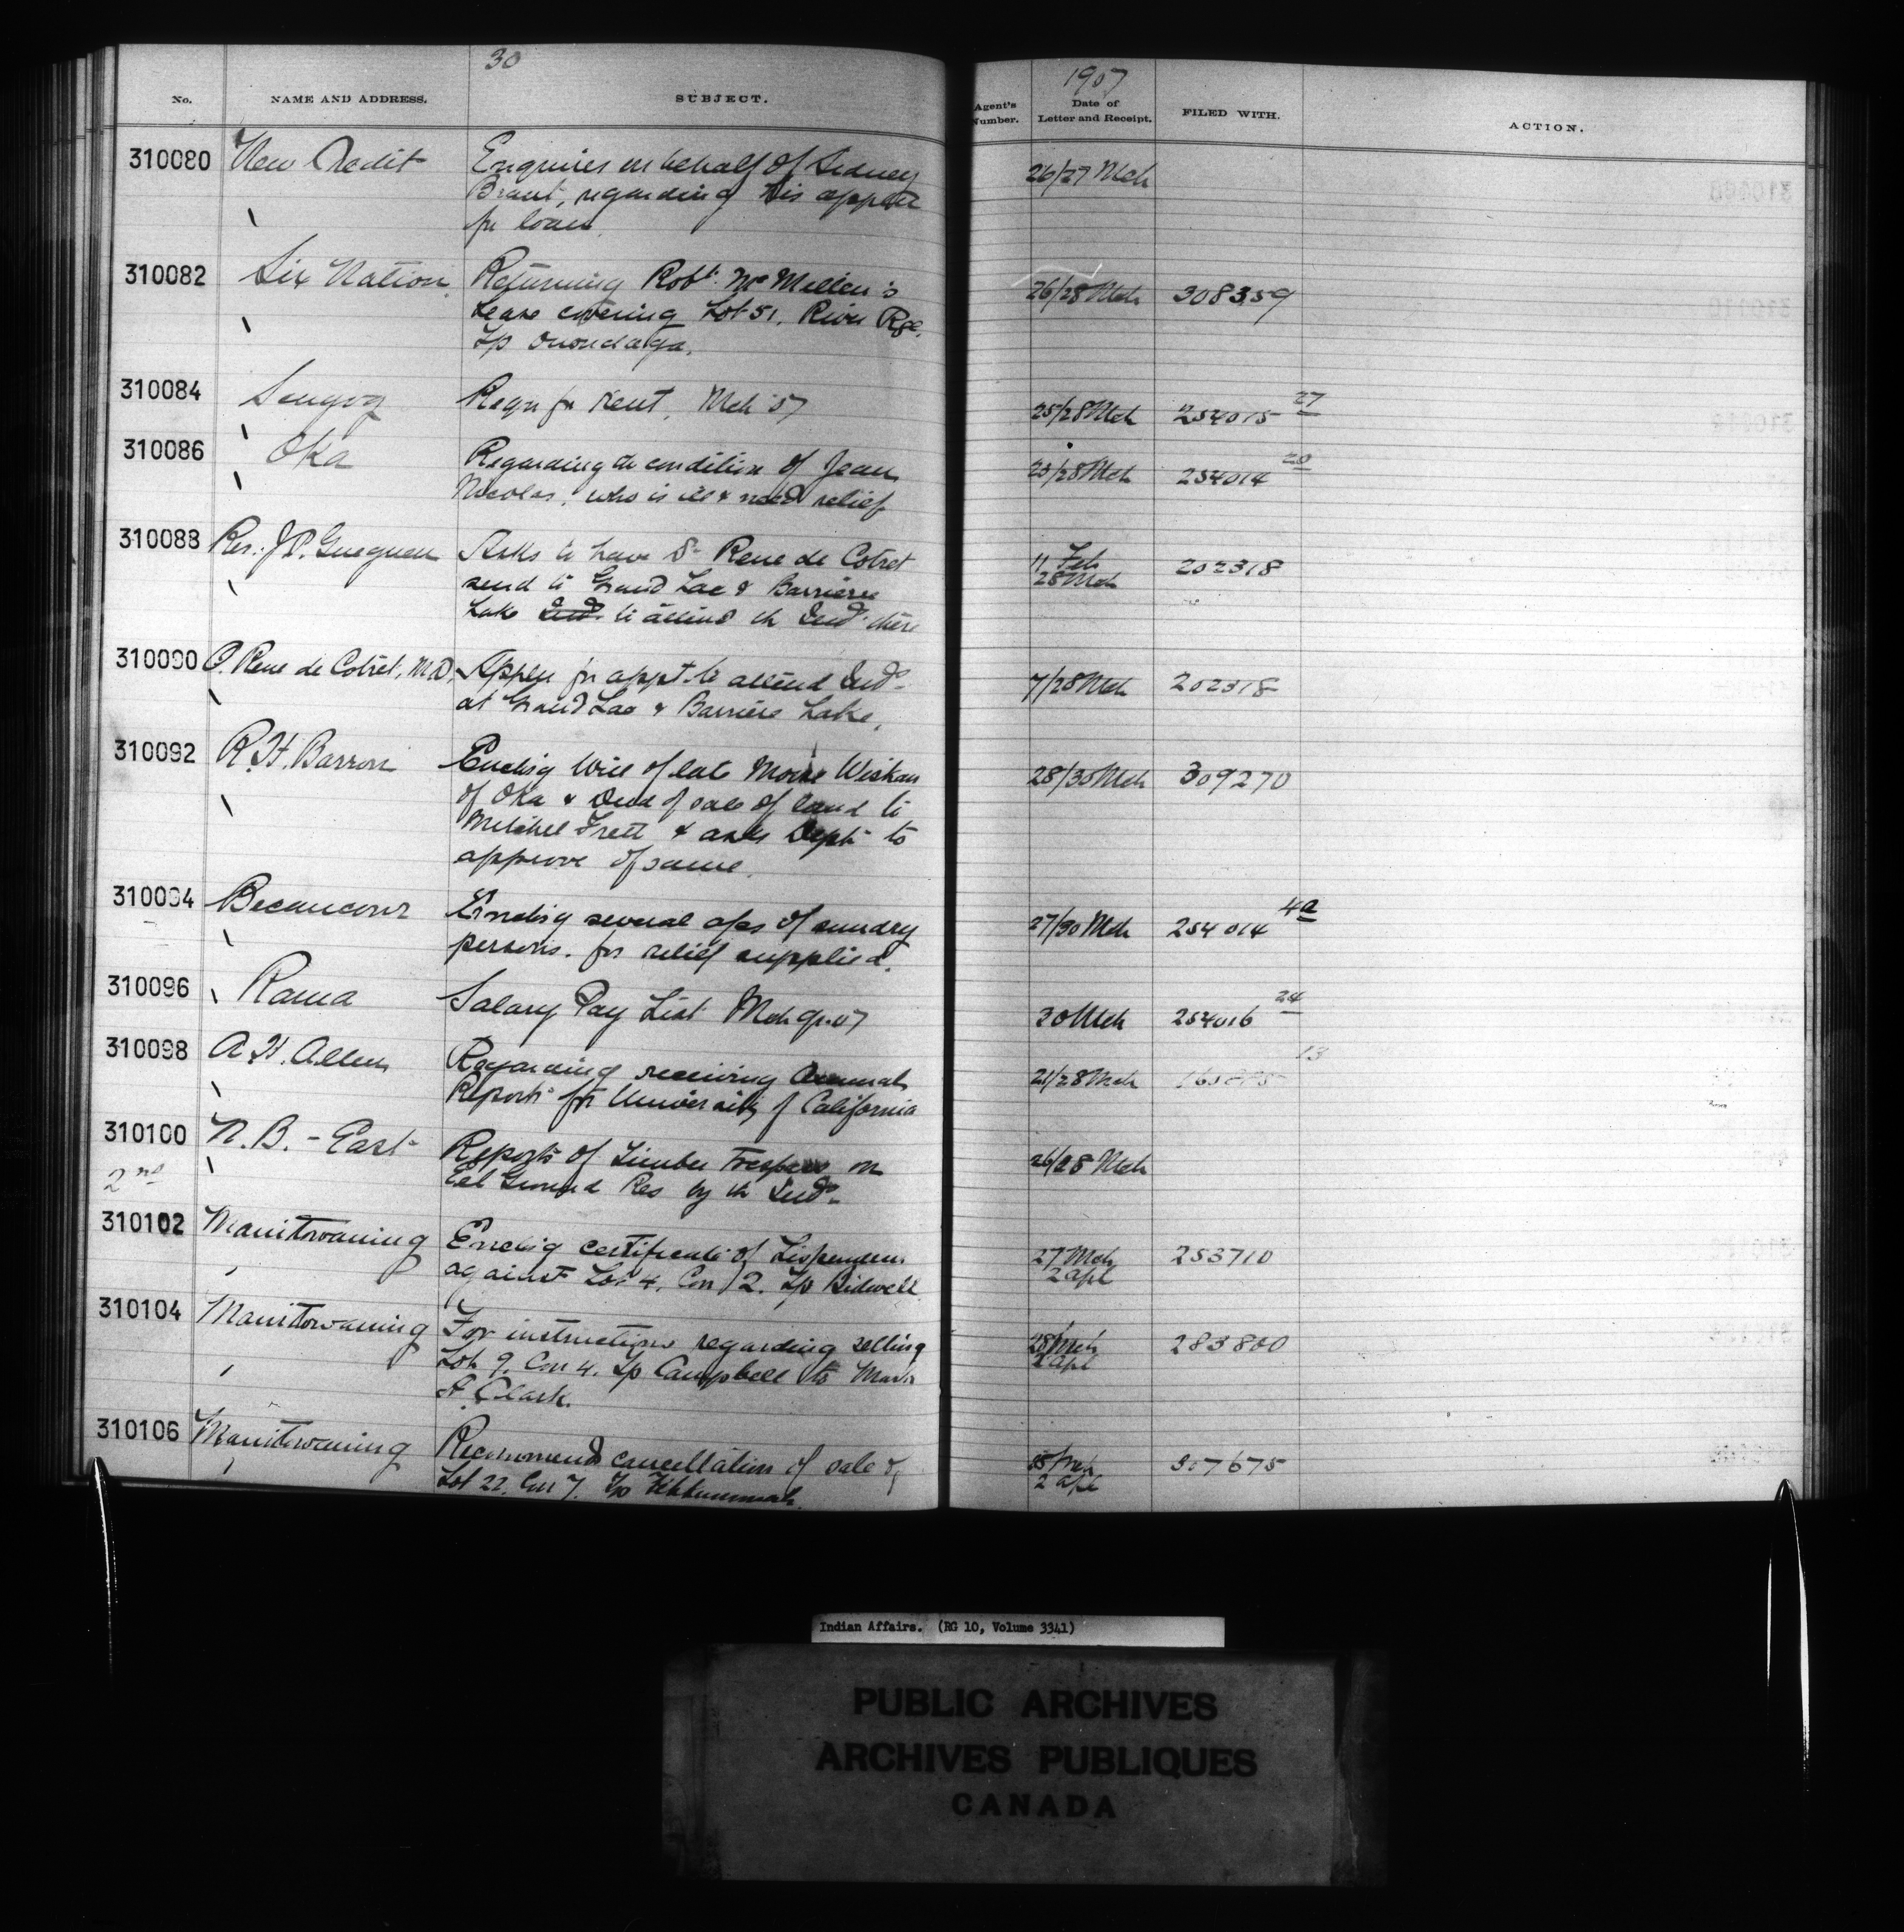 30
1907
No. NAME AND ADDRESS. SUBJECT. Agent's Number. Date of Letter and Receipt. FILED WITH. ACTION.
310080 New Credit Enquires on behalf of Sidney 26/27 Mch
Brant, regarding his
for loan.
310082 Six Nation Returning Robt. McMillen's 26/28 Mch 308359
Lease covering Lot 51, River Rge.
Tp Onondaga.
310084 Reqn for Rent, Mch 07 25/28 Mch 254015 27
310086 Oka Regarding the condition of Jean /28 Mch 254014 20
Nicolas, who is ill & need relief
310088 Rev. J.P. Gueguen Asks to have Dr Rene de Cotret 11 Feb 202318
send to Grand Lac & Barriere 28 Mch
Lake Inds. to attend the Inds. there
310090 O. Rene de Cotret, M.D. Appln for appt. to attend Inds. 7/28 Mch 202318
at Grand Lac & Barriere Lake.
310092 R.H. Barron Enclsg Will of late Moise 28/30 Mch 309270
of Oka & Deed of sale of land to
Mitchel Frett & asks Dept to
approve of same.
310094 Becancour Enclsg several a/cs of sundry 27/30 Mch 254014 4a
persons. for relief supplied.
310096 Rama Salary Pay List Mch qr. 07 30 Mch 254016 24
310098 A.H. Allen Regarding receiving Annual 21/28 Mch 13
Reports for University of California
310100 N.B. - East Reports of Timber Trespass on 26/28 Mch
2nd Eel Ground Res by the Inds.
310102 Manitowaning Enclsg certificate of Lispendens 27 Mch 253710
against Lot 4, Con 12. Tp Bidwell 2 Apl
310104 Manitowaning For instructions regarding selling 28 Mch 283800
Lot 9, Con 4. Tp Campbell to 2 Apl
A. Clark.
310106 Manitowaning Recommends cancellation of sale of 307675
Lot 22, Con 7. Tp Tehkummah. 2 Apl
Indian Affairs. (RG 10, Volume 3341)
PUBLIC ARCHIVES
ARCHIVES PUBLIQUES
CANADA